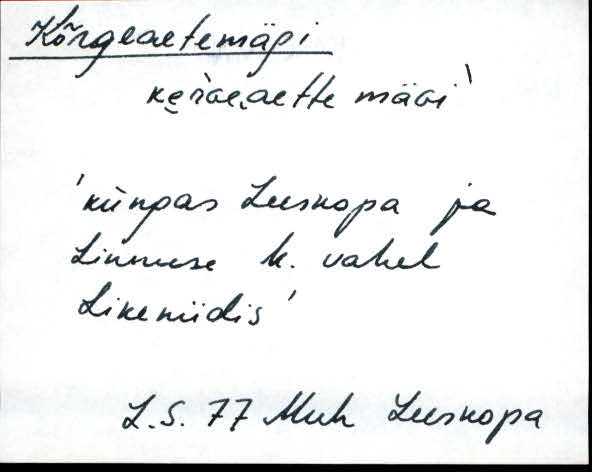 Kõrgeaetemägi
ke̮rGe.aette mäGi`
'küngas Leeskopa ja
Linnuse k. vahel
Likeniidis'
L.S. 77 Muh Leeskopa